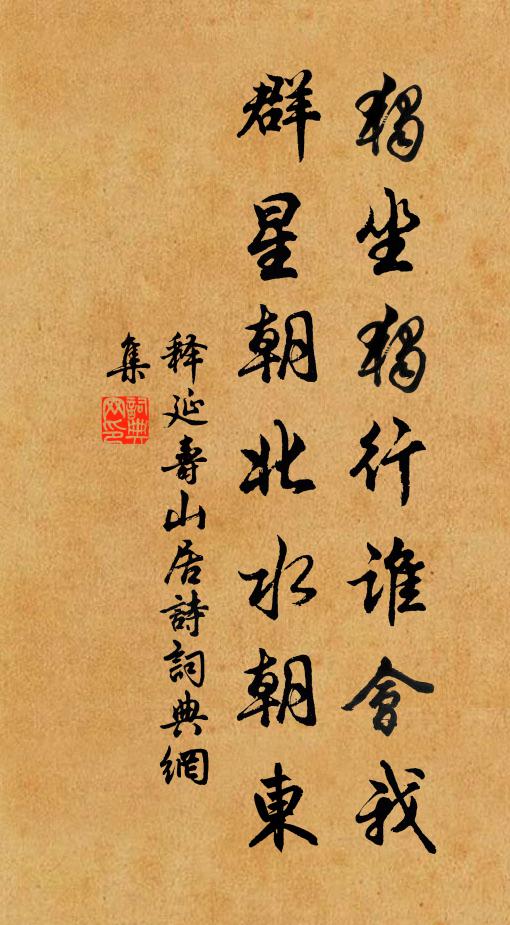 獨坐獨行誰會我
群星朝北水朝東
释延壽山居詩詞典網
集
詞典
网印